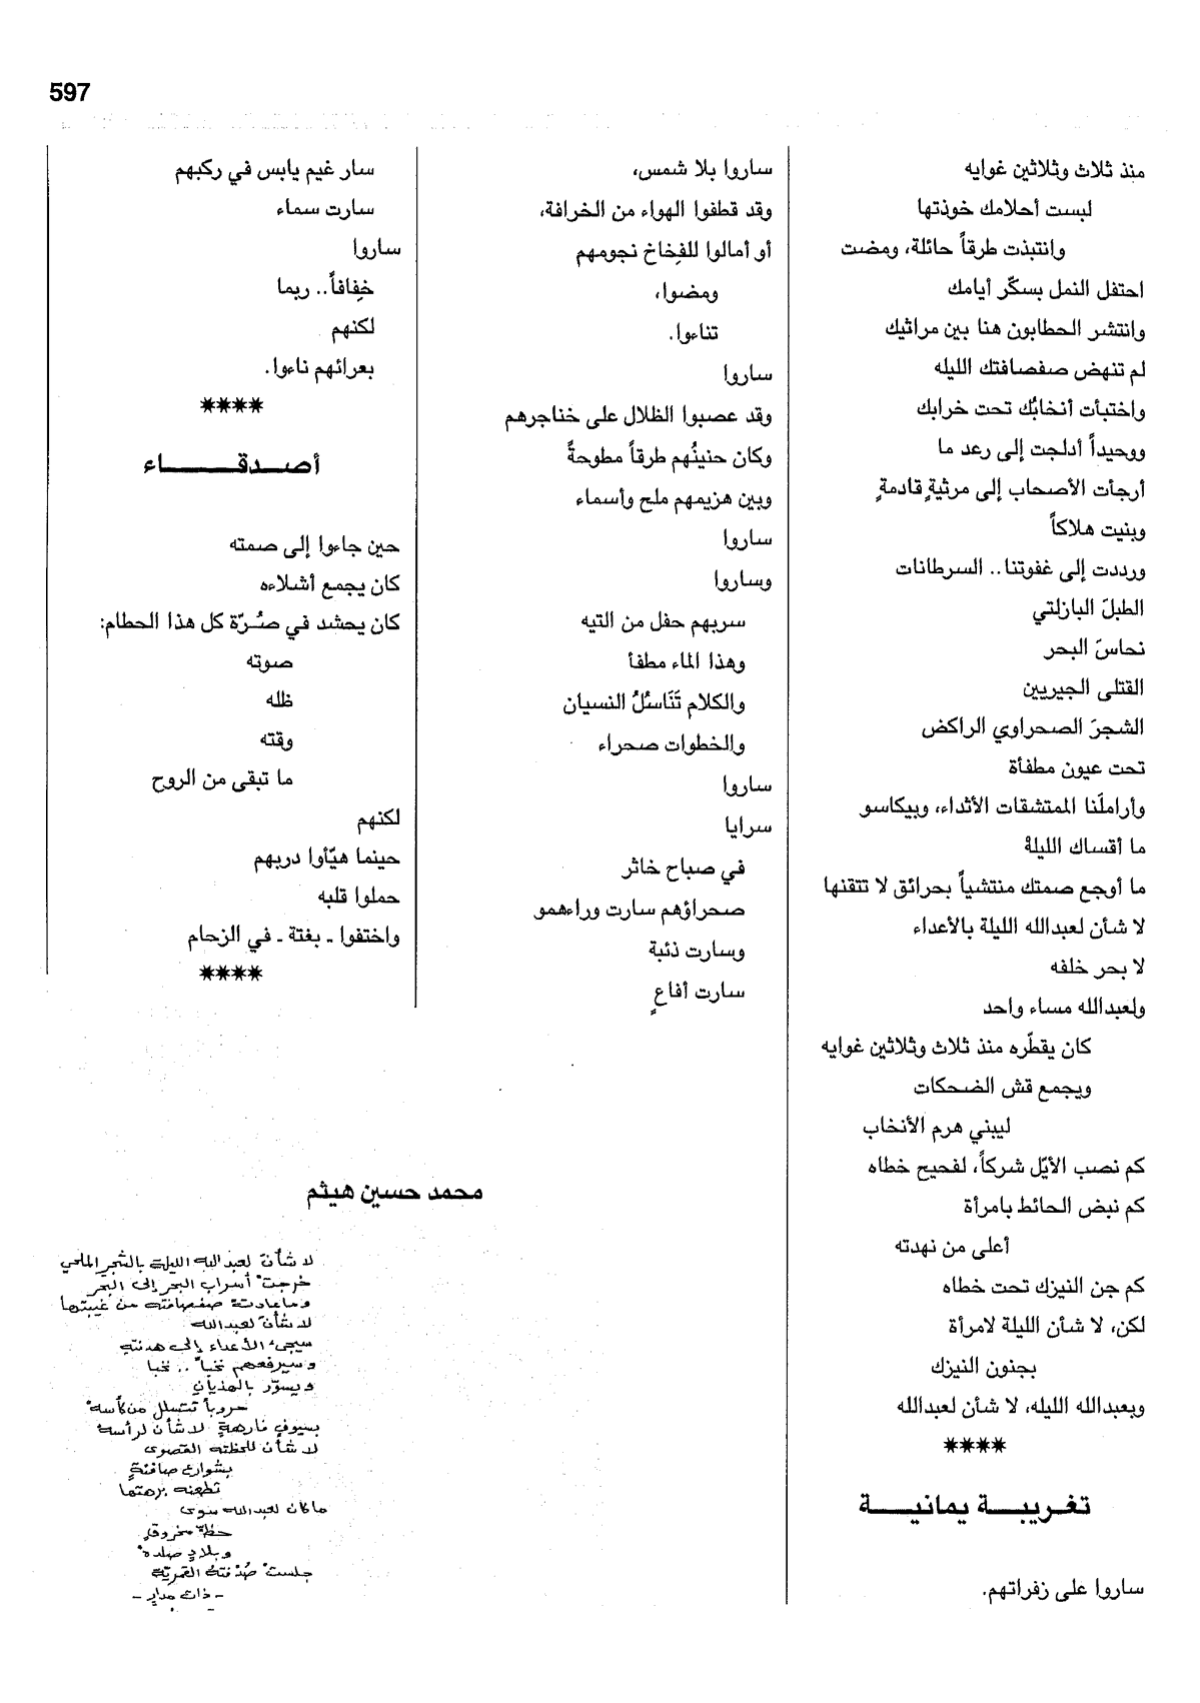 597
منذ ثلاث وثلاثين غوايه
لبست أحلامك خوذتها
وانتبذت طرقاً حائلة، ومضت
احتفل النمل بسكّر أيامك
وانتشر الحطابون هنا بين مراثيك
لم تنهض صفصافتك الليله
واختبأت أنخابُك تحت خرابك
ووحيداً أدلجت إلى رعد ما
أرجأت الأصحاب إلى مرثيةٍ قادمةٍ
وبنيت هلاكاً
ورددت إلى غفوتنا.. السرطانات
الطبلَ البازلتي
نحاسَ البحر
القتلى الجيريين
الشجرَ الصحراوي الراكض
تحت عيون مطفأة
وأراملَنا الممتشقات الأثداء، وبيكاسو
ما أقساك الليلهْ
ما أوجع صمتك منتشياً بحرائق لا تتقنها
لا شأن لعبدالله الليلة بالأعداء
لا بحر خلفه
ولعبدالله مساء واحد
كان يقطّره منذ ثلاث وثلاثين غوايه
ويجمع قش الضحكات
ليبني هرم الأنخاب
كم نصب الأيّل شركاً، لفحيح خطاه
كم نبض الحائط بامرأة
أعلى من نهدته
كم جن النيزك تحت خطاه
لكن، لا شأن الليلة لامرأة
بجنون النيزك
وبعبدالله الليله، لا شأن لعبدالله
****
تغـريبـــة يمانيــــة
ساروا على زفراتهم.
ساروا بلا شمس،
وقد قطفوا الهواء من الخرافة،
أو أمالوا للفِخاخ نجومهم
ومضوا،
تناءوا.
ساروا
وقد عصبوا الظلال على خناجرهم
وكان حنينُهم طرقاً مطوحةً
وبين هزيمهم ملح وأسماء
ساروا
وساروا
سربهم حفل من التيه
وهذا الماء مطفأ
والكلام تَنَاسُلُ النسيان
والخطوات صحراء
ساروا
سرايا
في صباح خاثر
صحراؤهم سارت وراءهمو
وسارت ذئبة
سارت أفاعٍ
سار غيم يابس في ركبهم
سارت سماء
ساروا
خِفافاً.. ربما
لكنهم
بعرائهم ناءوا.
****
أصــدقــــــــاء
حين جاءوا إلى صمته
كان يجمع أشلاءه
كان يحشد في صُـرّة كل هذا الحطام:
صوته
ظله
وقته
ما تبقى من الروح
لكنهم
حينما هيّأوا دربهم
حملوا قلبه
واختفوا ـ بغتة ـ في الزحام
****
محمد حسين هيثم
لا شأنَ لعبد الله الليلة بالشجر الملحي
خرجتْ أسراب البحر إلى البحر
وما عادت صفصافته من غيبتها
لا شأنَ لعبدالله
سيجيء الأعداء إلى هدنته
وسيرفعهم نخباً .. نخبا
ويسوّر بالهذيان
حروباً تتسلل من كأسهْ
بسيوفٍ فارهةٍ لا شأن لرأسهْ
لا شأن للحظته القصوى
بشوارع صافنةٍ
تطعنه برهتها
ما كان لعبدالله سوى
حظٍّ مخروقٍ
وبلادٍ صلدهْ
جلستْ صُدْفتهُ القمريّة
- ذات مدارٍ -